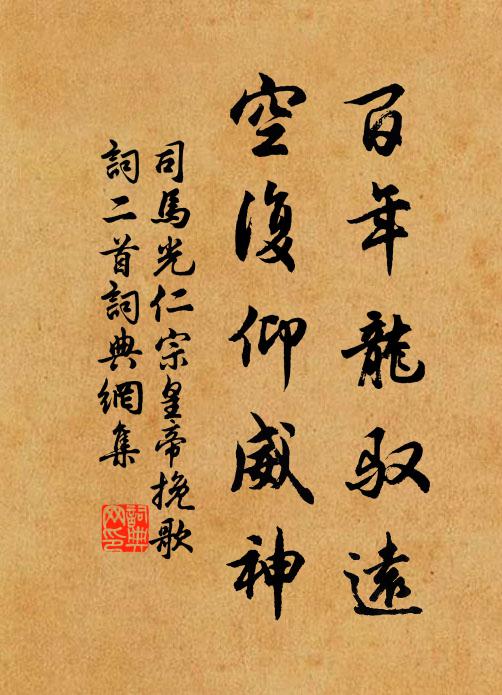 百年龍馭遠
空復仰威神
司馬光仁宗皇帝挽歌
詞二首詞典網集
詞典網印